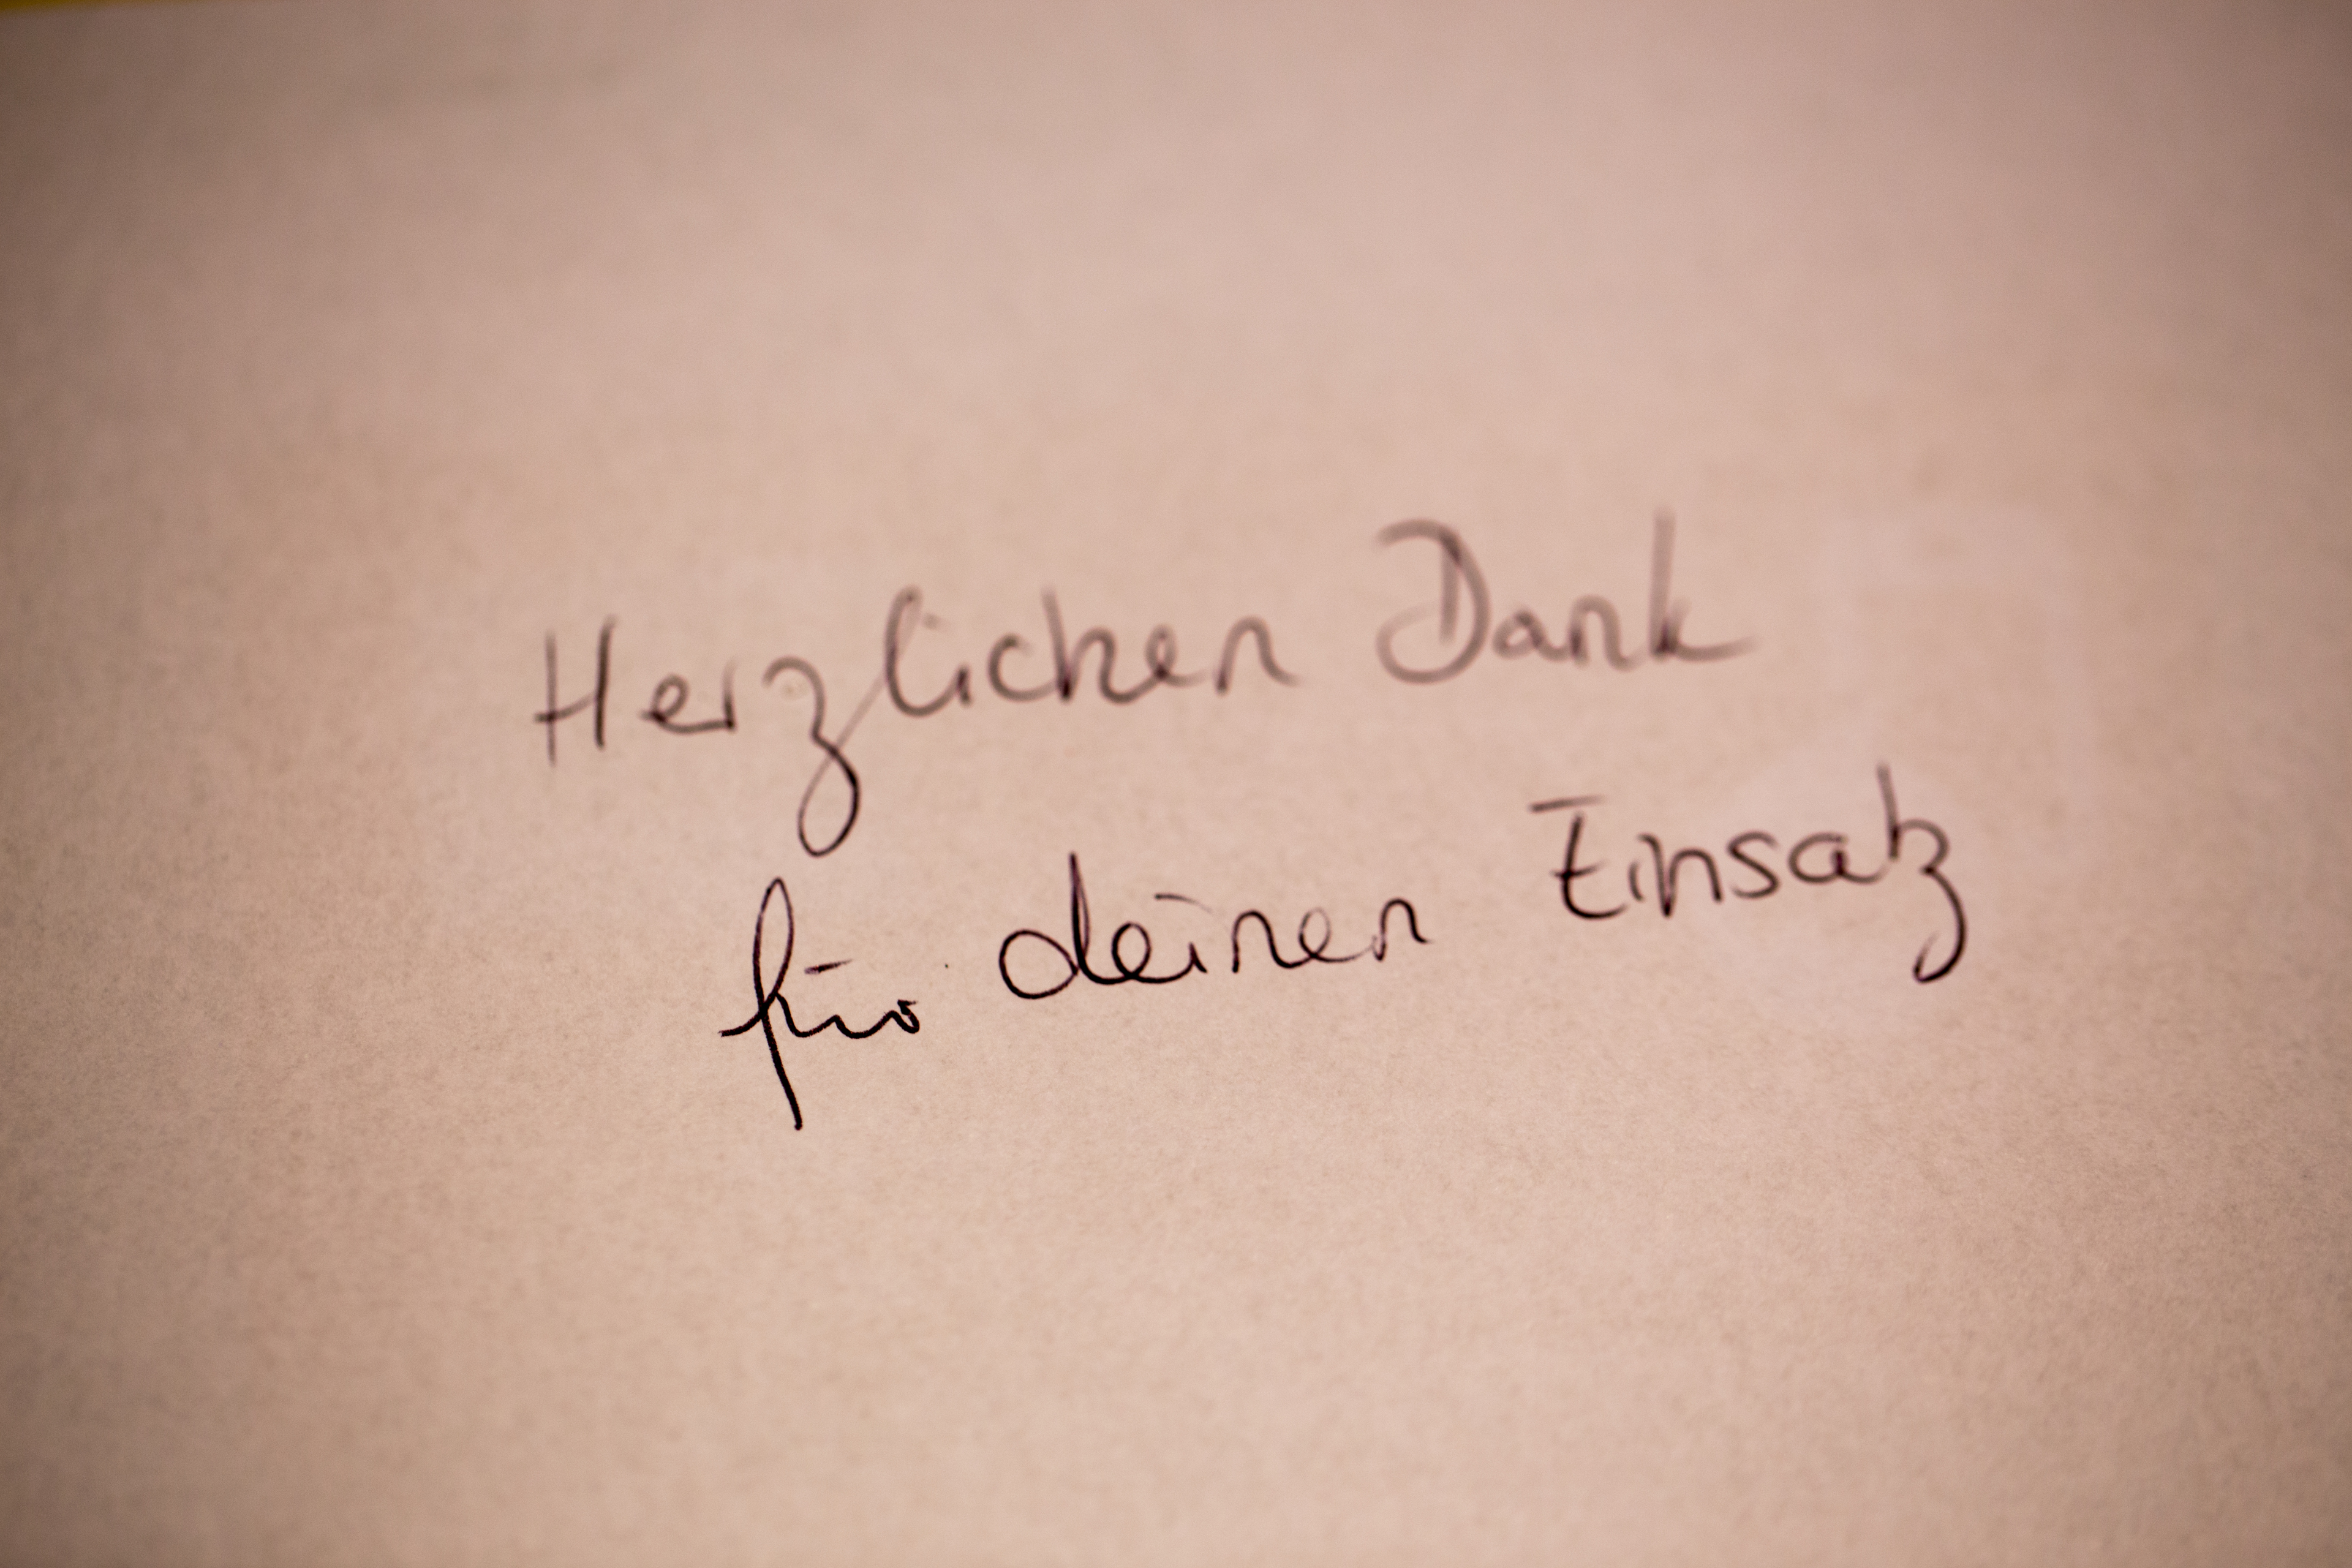 Herzlichen Dank
für deinen Einsatz